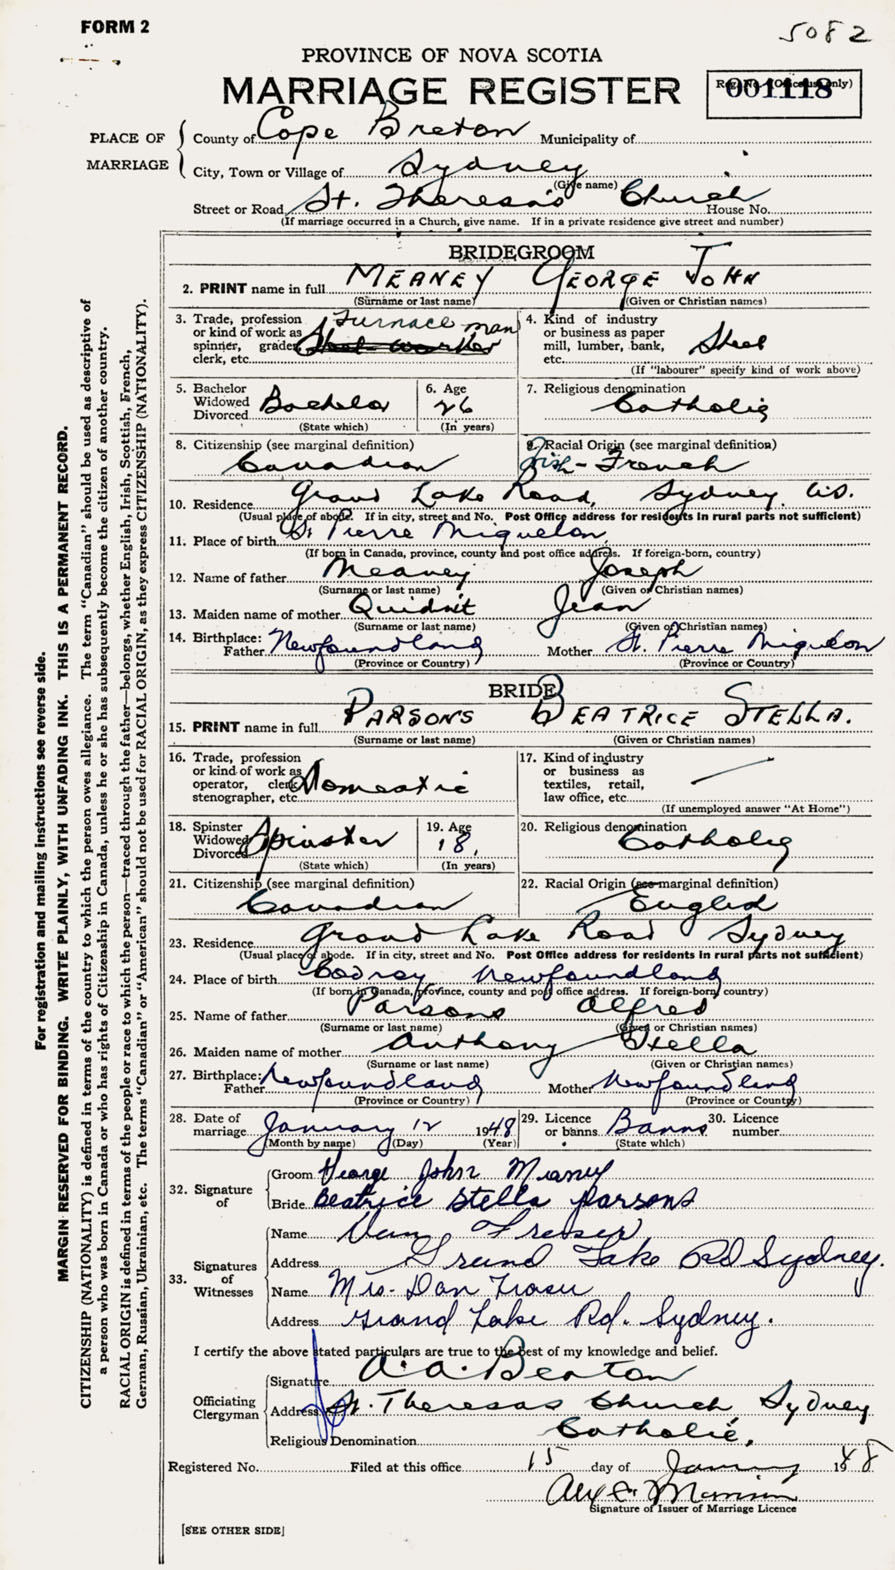 FORM 2
5082
PROVINCE OF NOVA SCOTIA
MARRIAGE REGISTER
Reg. No. (Office use only)
001118
PLACE OF MARRIAGE
County of Cape Breton Municipality of
City, Town or Village of Sydney
(Give name)
Street or Road St. Theresa's Church House No.
(If marriage occurred in a Church, give name. If in a private residence give street and number)
BRIDEGROOM
2. PRINT name in full MEANEY GEORGE JOHN
(Surname or last name) (Given or Christian names)
3. Trade, profession or kind of work as spinner, grader, clerk, etc. Furnace man Steel worker
4. Kind of industry or business as paper mill, lumber, bank, etc. Steel
(If "labourer" specify kind of work above)
5. Bachelor Widowed Divorced Bachelor
(State which)
6. Age 26
(In years)
7. Religious denomination Catholic
8. Citizenship (see marginal definition) Canadian
9. Racial Origin (see marginal definition) Irish-French
10. Residence Grand Lake Road, Sydney. C.B.
(Usual place of abode. If in city, street and No. Post Office address for residents in rural parts not sufficient)
11. Place of birth St Pierre Miquelon
(If born in Canada, province, county and post office address. If foreign-born, country)
12. Name of father Meaney Joseph
(Surname or last name) (Given or Christian names)
13. Maiden name of mother Jean
(Surname or last name) (Given or Christian names)
14. Birthplace: Father Newfoundland Mother St. Pierre Miquelon
(Province or Country) (Province or Country)
BRIDE
15. PRINT name in full PARSONS BEATRICE STELLA.
(Surname or last name) (Given or Christian names)
16. Trade, profession or kind of work as operator, clerk, stenographer, etc. Domestic
17. Kind of industry or business as textiles, retail, law office, etc.
(If unemployed answer "At Home")
18. Spinster Widowed Divorced Spinster
(State which)
19. Age 18,
(In years)
20. Religious denomination Catholic
21. Citizenship (see marginal definition) Canadian
22. Racial Origin (see marginal definition) English
23. Residence Grand Lake Road Sydney
(Usual place of abode. If in city, street and No. Post Office address for residents in rural parts not sufficient)
24. Place of birth Codroy Newfoundland
(If born in Canada, province, county and post office address. If foreign-born, country)
25. Name of father Parsons Alfred
(Surname or last name) (Given or Christian names)
26. Maiden name of mother Anthony Stella
(Surname or last name) (Given or Christian names)
27. Birthplace: Father Newfoundland Mother Newfoundland
(Province or Country) (Province or Country)
28. Date of marriage January 12 1948
(Month by name) (Day) (Year)
29. Licence or banns Banns
(State which)
30. Licence number
32. Signature of
Groom George John Meaney
Bride Beatrice Stella Parsons
33. Signatures of Witnesses
Name Dan Fraser
Address Grand Lake Rd Sydney.
Name Mrs. Dan Fraser
Address Grand Lake Rd. Sydney.
I certify the above stated particulars are true to the best of my knowledge and belief.
Officiating Clergyman
Signature A. A. Beaton
Address St. Theresas Church, Sydney
Religious Denomination Catholic.
Registered No. Filed at this office 15 day of January 1948
Signature of Issuer of Marriage Licence
[SEE OTHER SIDE]
For registration and mailing instructions see reverse side.
MARGIN RESERVED FOR BINDING. WRITE PLAINLY, WITH UNFADING INK. THIS IS A PERMANENT RECORD.
CITIZENSHIP (NATIONALITY) is defined in terms of the country to which the person owes allegiance. The term "Canadian" should be used as descriptive of
a person who was born in Canada or who has rights of Citizenship in Canada, unless he or she has subsequently become the citizen of another country.
RACIAL ORIGIN is defined in terms of the people or race to which the person—traced through the father—belongs, whether English, Irish, Scottish, French,
German, Russian, Ukrainian, etc. The terms "Canadian" or "American" should not be used for RACIAL ORIGIN, as they express CITIZENSHIP (NATIONALITY).